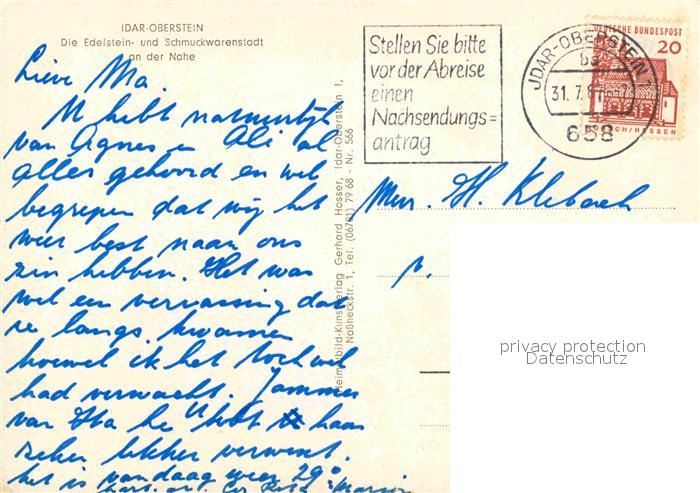 IDAR-OBERSTEIN
Die Edelstein- und Schmuckwarenstadt
an der Nahe
Lieve Ma.
U hebt natuurlijk
van Agnes en Ali al
alles gehoord en wel
begrepen dat wij het
weer best naar ons
zin hebben. Het was
wel een verrassing dat
ze langs kwamen
hoewel ik het toch wel
had verwacht. Jammer
van Ita he U hebt haar
zeker lekker verwent.
het is vandaag weer 29°
hart. gr.
Heimatbild-Kunstverlag Gerhard Hosser, Idar-Oberstein 1,
Naßheckstr. 1, Tel. (06781) 79 68 - Nr. 566
Stellen Sie bitte
vor der Abreise
einen
Nachsendungs=
antrag
IDAR-OBERSTEIN 1
ba
31.7.
658
DEUTSCHE BUNDESPOST
20
LORSCH/HESSEN
Mevr. H. Klebach
p.
privacy protection
Datenschutz